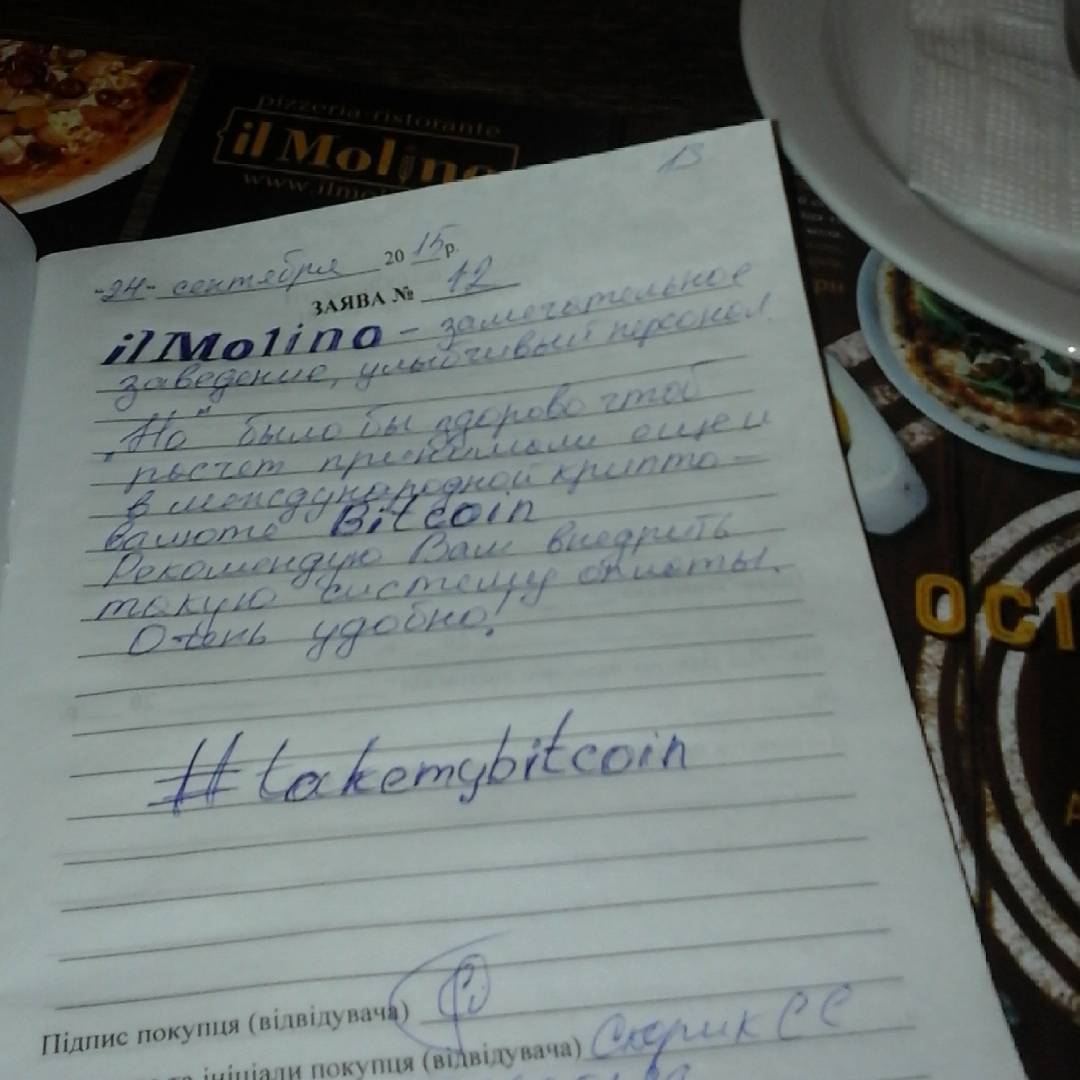 pizzeria ristorante
il Molino
13
-24- сентября 2015р.
ЗАЯВА № 12
il Molino - замечательное
заведение, улыбчивый персонал.
"Но" было бы здорово чтоб
расчет принимали еще и
в международной крипто-
валюте Bitcoin
Рекомендую Вам внедрить
такую систему оплаты.
Очень удобно!
#takemybitcoin
Підпис покупця (відвідувача)
та ініціали покупця (відвідувача) Скорик С С
ОСІ